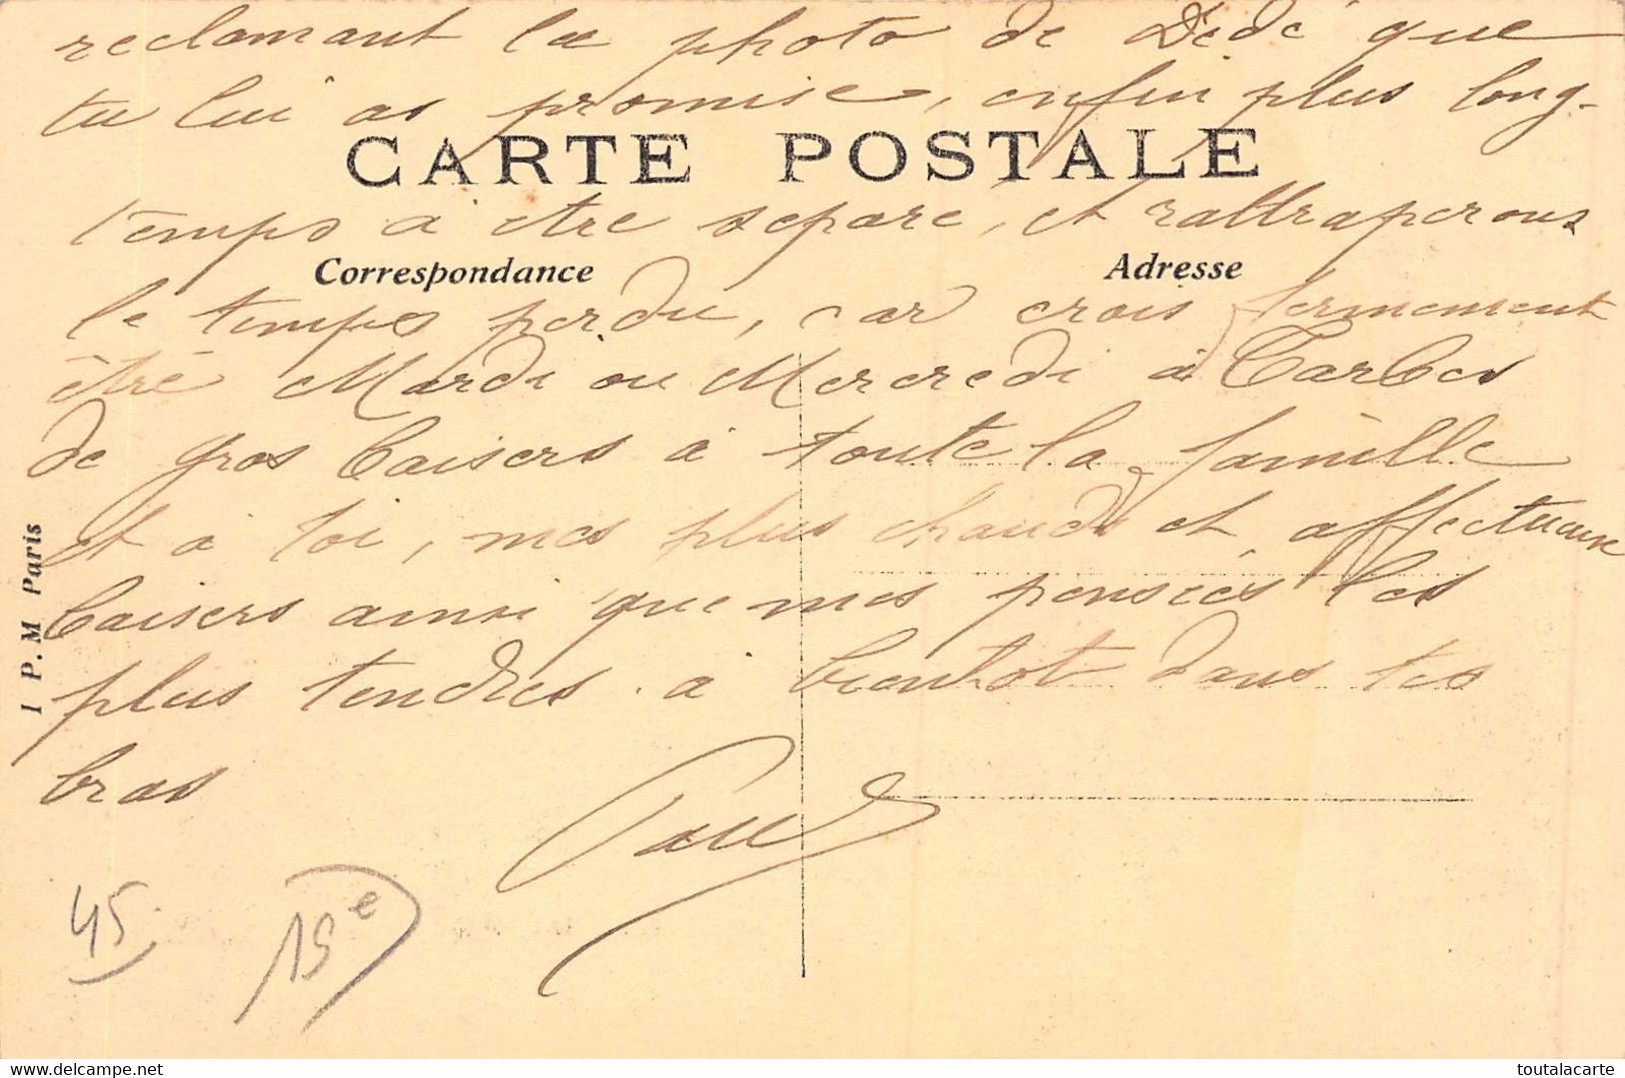 reclamant la photo de Dédé que
tu lui as promise, enfin plus long-
CARTE POSTALE
temps à être séparé, et rattraperons
Correspondance
Adresse
le temps perdu, car crois fermement
être Mardi ou Mercredi à Tarbes
de gros baisers à toute la famille
et à toi, mes plus chauds et affectueux
baisers ainsi que mes pensées les
plus tendres. à bientot dans tes
bras
Paul
45
15e
I P. M Paris
delcampe.net
toutalacarte